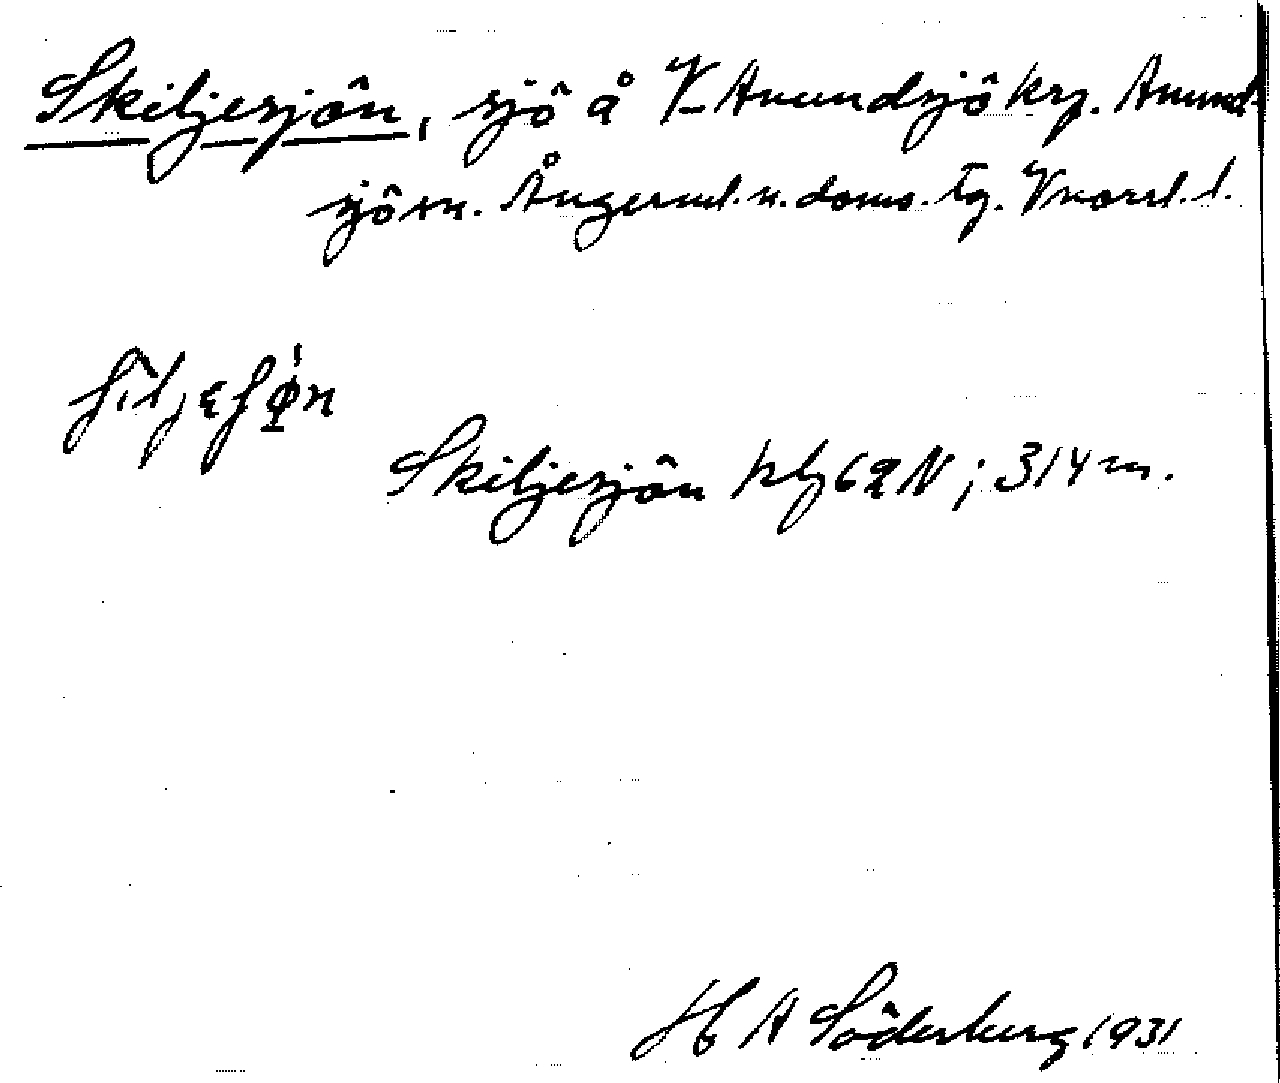 Skiljesjön, sjö å V. Anundsjö krp. Anund-
sjö sn. Ångerml. n. doms. tg. Vnorrl. l.
ʃìljɛʃø̀n
Skiljesjön kbl 62 N; 314 m.
H A Söderberg 1931